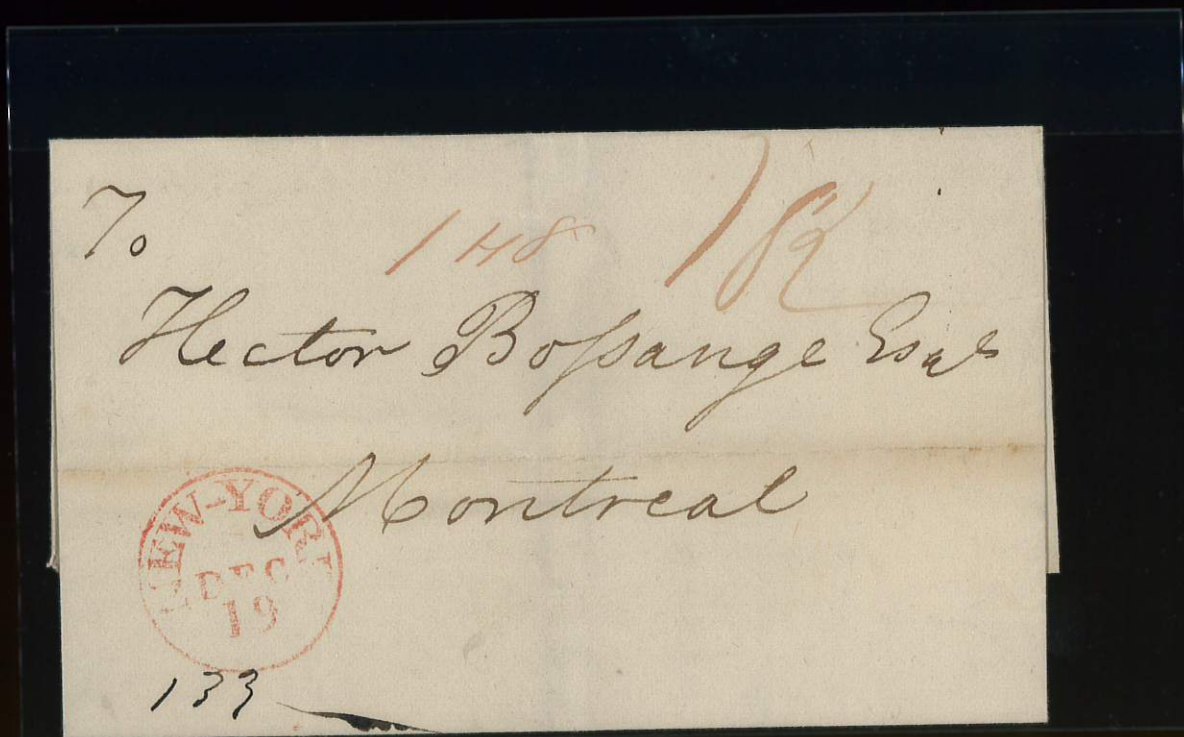 To
1 H8
Hector Boſsange Esqr
Montreal
NEW-YORK
DEC
19
133